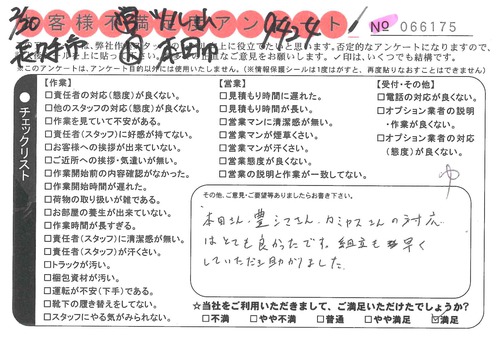 お客様不満足度アンケート
No 066175
7/30
9424
※このアンケートは、アンケート目的以外には使用いたしません。（※情報保護シールは1度がすと、再度貼りなおすことはできません）
チェックリスト
【作業】
□責任者の対応(態度)が良くない。
□他のスタッフの対応(態度)が良くない。
□作業を見ていて不安がある。
□責任者(スタッフ)に好感が持てない。
□お客様への挨拶が出来ていない。
□ご近所への挨拶・気遣いが無い。
□作業開始前の内容確認がなかった。
□作業開始時間が遅れた。
□荷物の取り扱いが雑である。
□お部屋の養生が出来ていない。
□作業時間が長すぎる。
□責任者(スタッフ)に清潔感が無い。
□責任者(スタッフ)が汗くさい。
□トラックが汚い。
□梱包資材が汚い。
□運転が不安(下手)である。
□靴下の履き替えをしてない。
□スタッフにやる気がみられない。
【営業】
□見積もり時間に遅れた。
□見積もり時間が長い。
□営業マンに清潔感が無い。
□営業マンが煙草くさい。
□営業マンが汗くさい。
□営業態度が良くない。
□営業の説明と作業が一致してない。
【受付・その他】
□電話の対応が良くない。
□オプション業者の説明
・作業が良くない。
□オプション業者の対応
(態度)が良くない。
その他、ご意見・ご要望等ありましたらお書き下さい。
本田さん、豊シマさん、カミヤスさんの対応
はとても良かったです。組立も早く
していただき助かりました。
☆当社をご利用いただきまして、ご満足いただけたでしょうか?
□不満 □やや不満 □普通 □やや満足 ☑満足